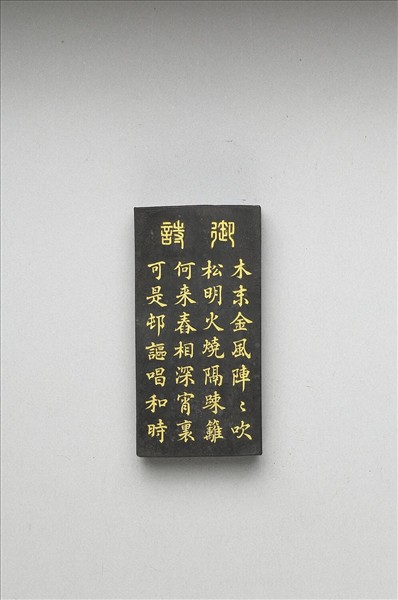 御詩
木末金風陣〻吹
松明火燒隔踈籬
何来舂相深宵裏
可是邨謳唱和時